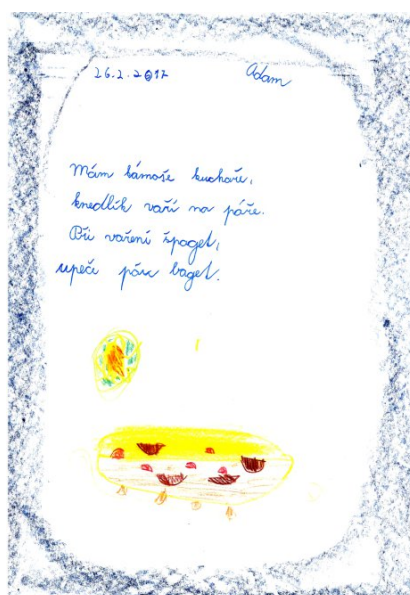 26.2.2017 Adam
Mám kámoše kuchaře,
knedlík vaří na páře.
Při vaření špaget,
upeču pár baget.